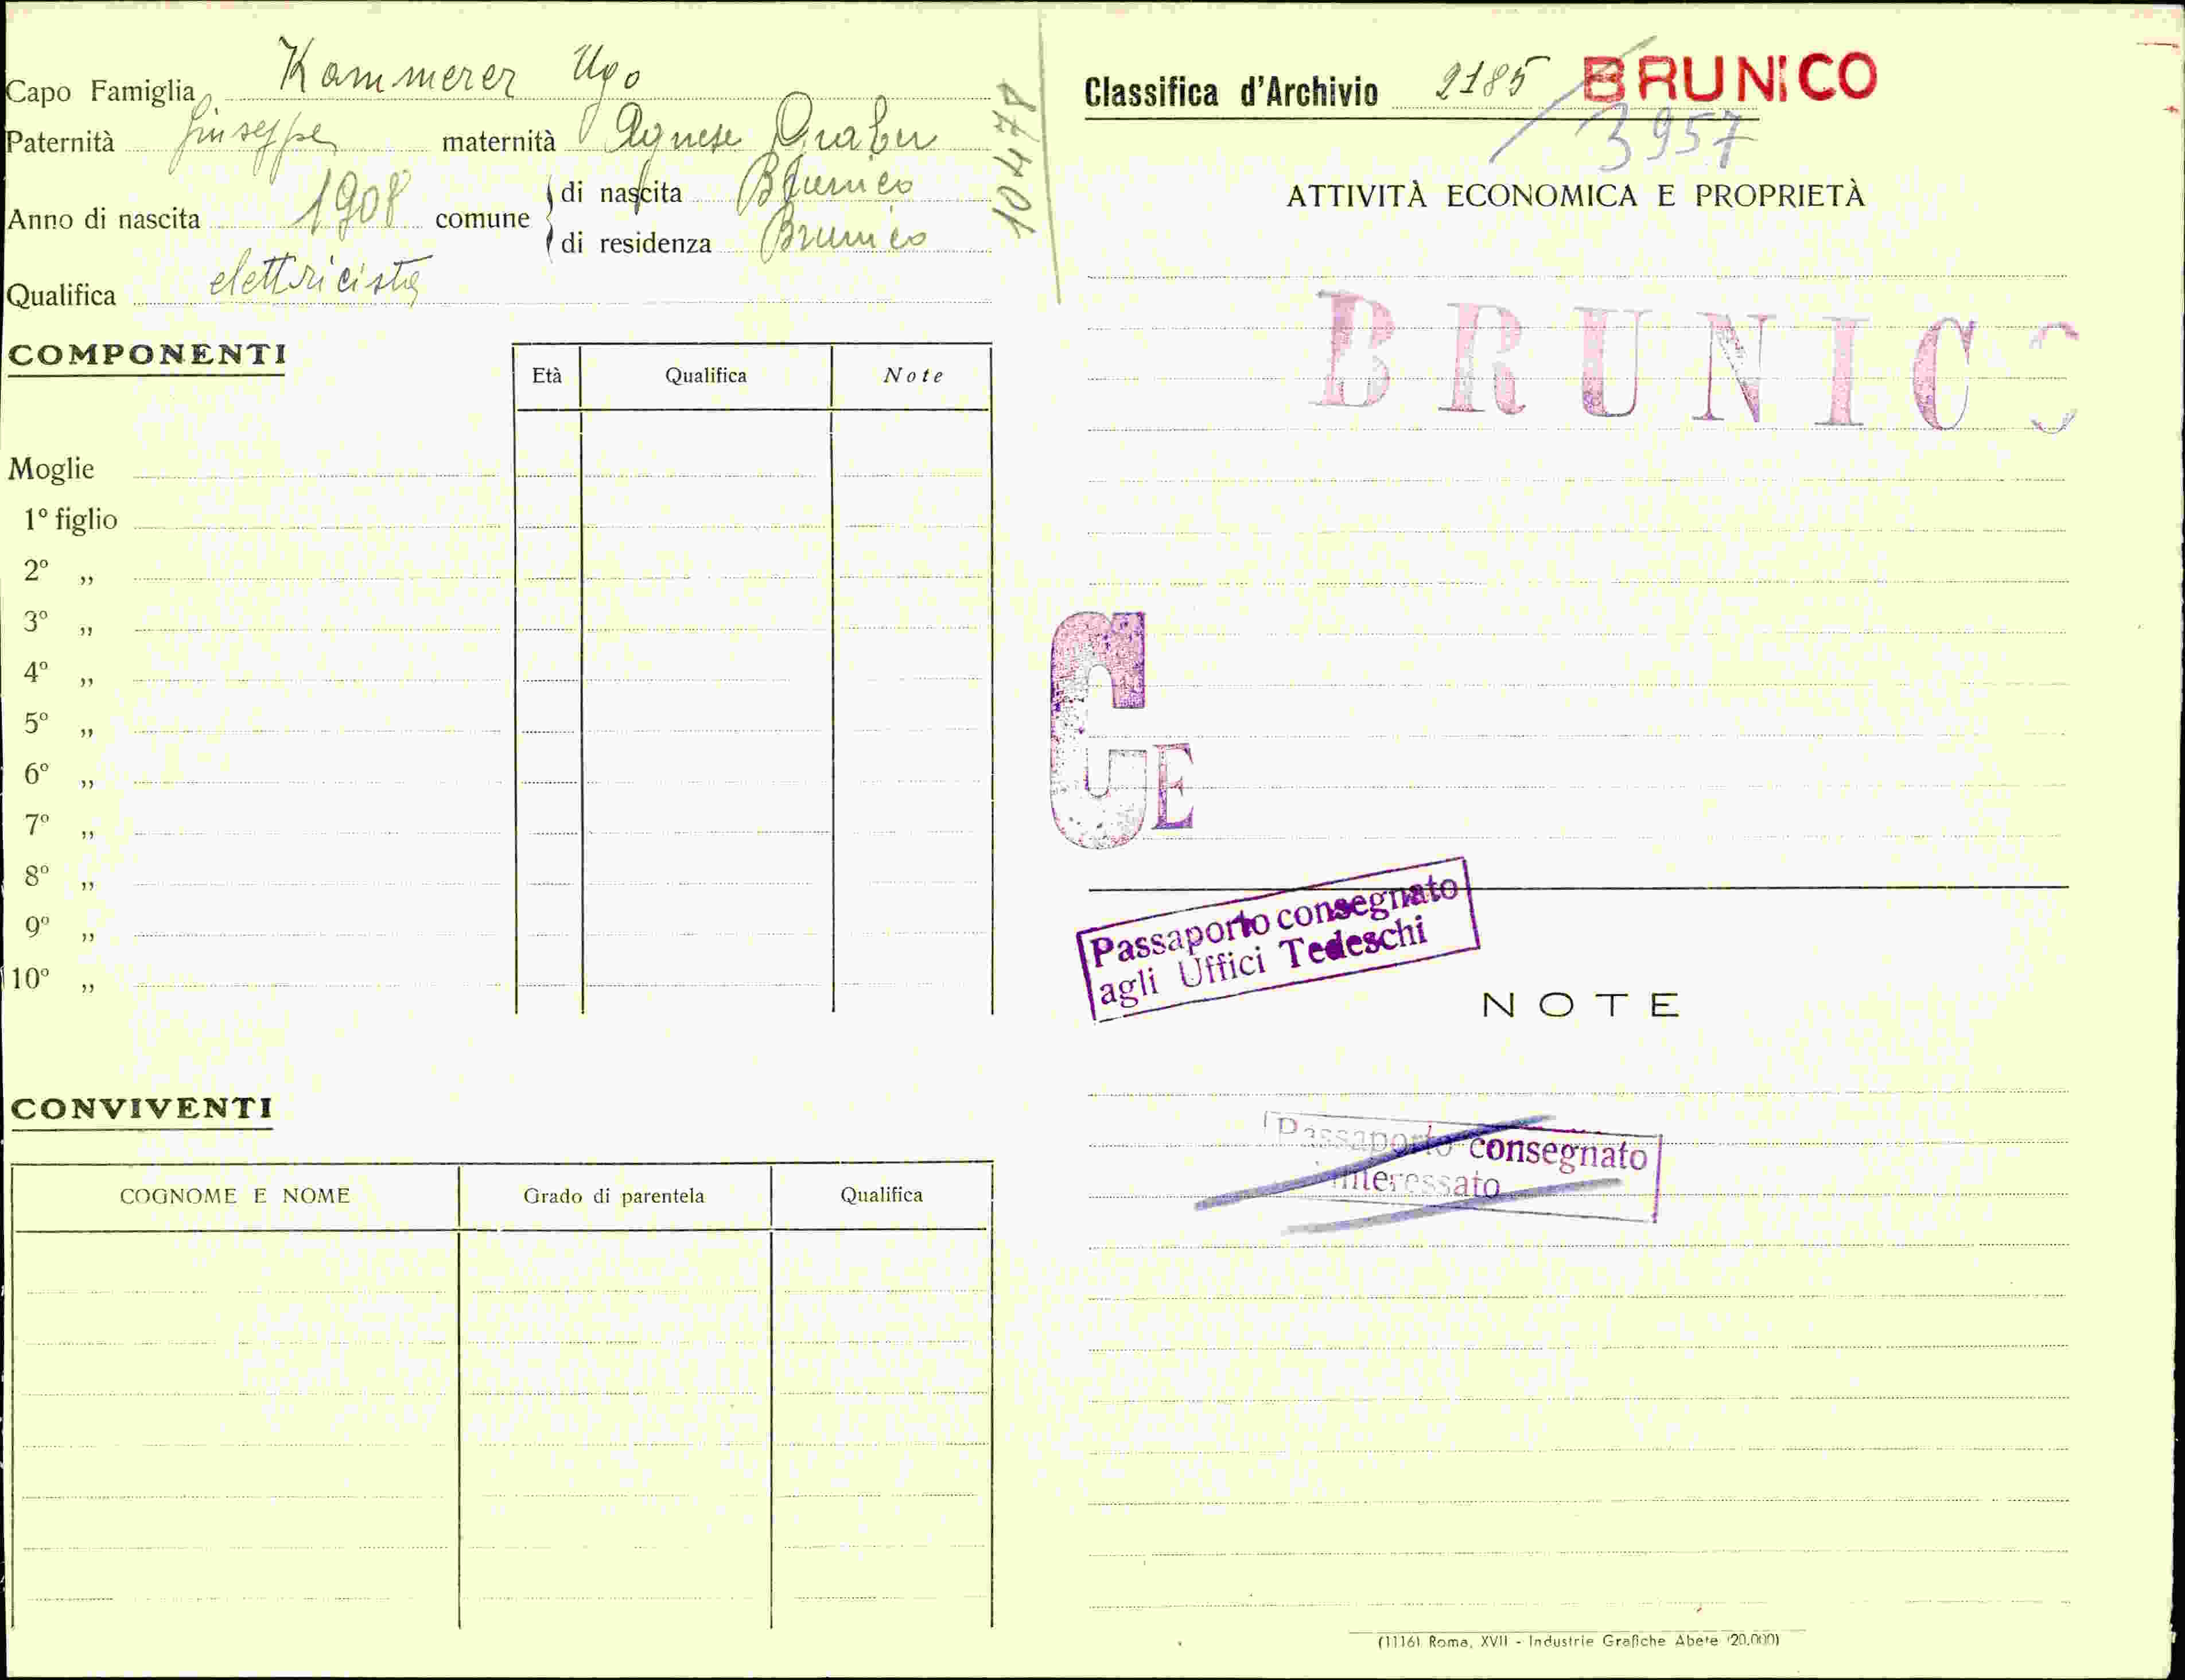 Capo Famiglia Kammerer Ugo
Paternità Giuseppe maternità Agnese
Anno di nascita 1908 comune di nascita Brunico
di residenza Brunico
Qualifica elettricista
10478
COMPONENTI
Età Qualifica Note
Moglie
1º figlio
2º „
3º „
4º „
5º „
6º „
7º „
8º „
9º „
10º „
CONVIVENTI
COGNOME E NOME Grado di parentela Qualifica
Classifica d'Archivio 2185 BRUNICO
3957
ATTIVITÀ ECONOMICA E PROPRIETÀ
BRUNICO
G E
Passaporto consegnato
agli Uffici Tedeschi
NOTE
Passaporto consegnato
interessato
(1116) Roma, XVII - Industrie Grafiche Abete (20.000)